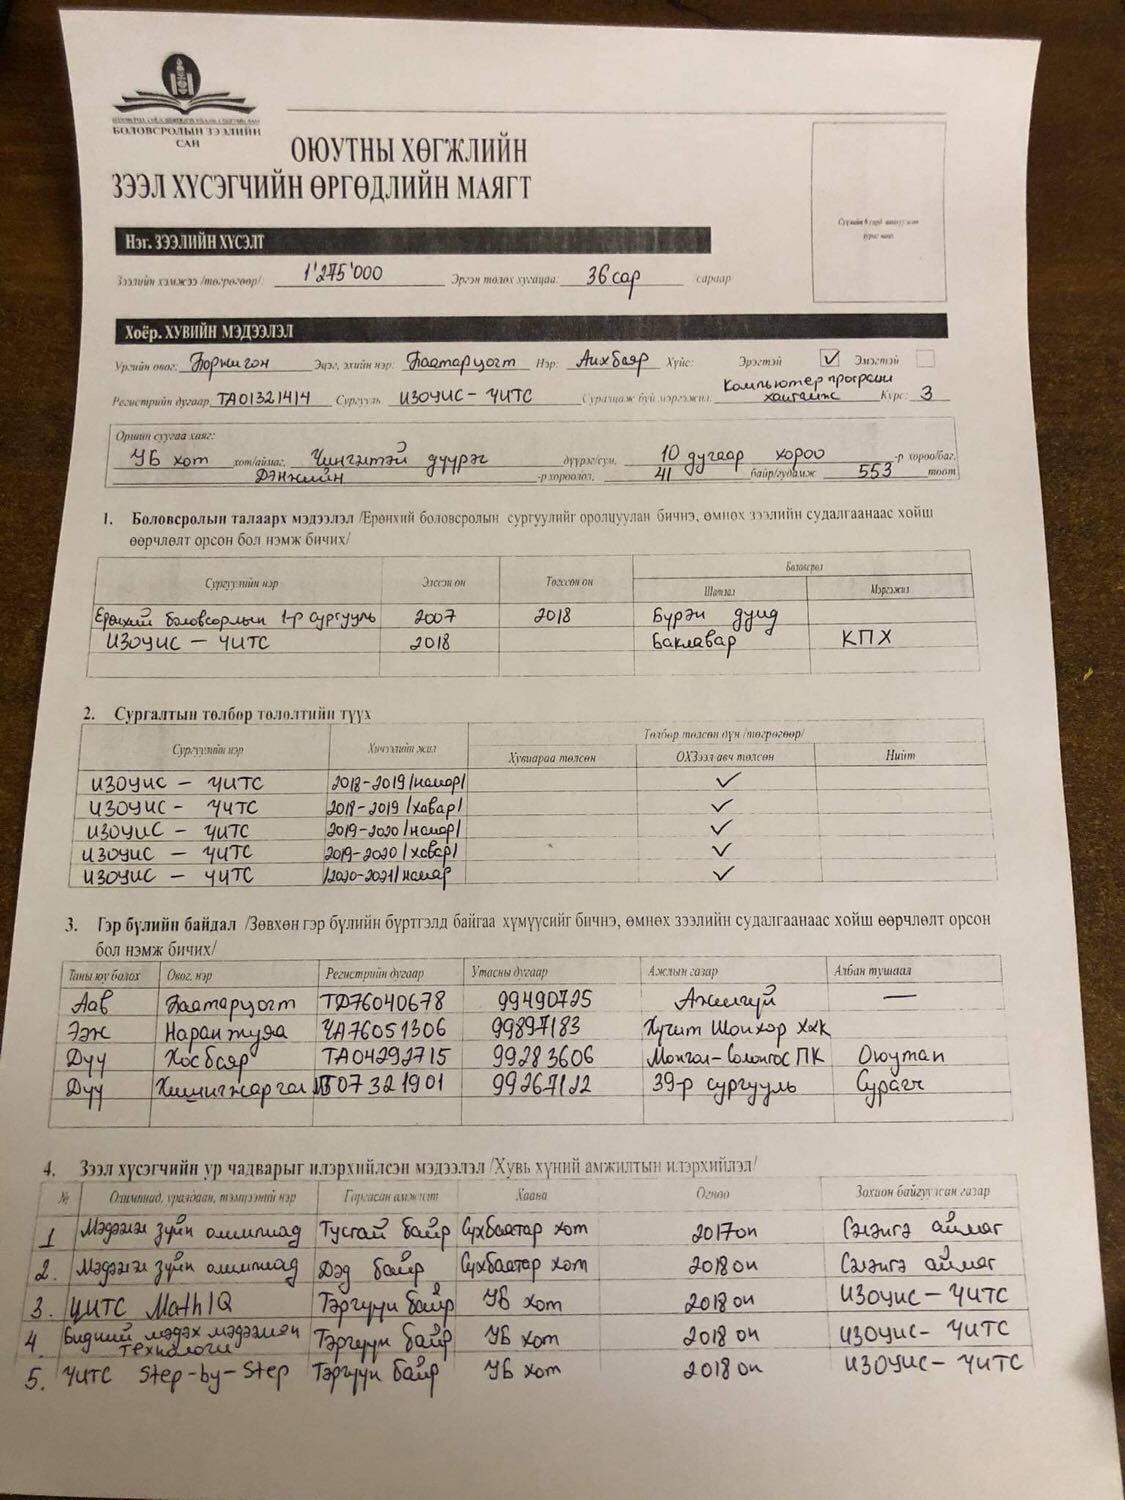 БОЛОВСРОЛЫН ЗЭЭЛИЙН
САН
ОЮУТНЫ ХӨГЖЛИЙН
ЗЭЭЛ ХҮСЭГЧИЙН ӨРГӨДЛИЙН МАЯГТ
Нэг. ЗЭЭЛИЙН ХҮСЭЛТ
Зээлийн хэмжээ /төгрөгөөр/: 1'275'000 Эргэн төлөх хугацаа: 36 сар сараар
Хоёр. ХУВИЙН МЭДЭЭЛЭЛ
Ургийн овог: Боржигон Эцэг, эхийн нэр: Баатарцогт Нэр: Анхбаяр Хүйс: Эрэгтэй ✓ Эмэгтэй
Регистрийн дугаар ТА01321414 Сургууль ИЗОУИС - ЧИТС Суралцаж буй мэргэжил: Компьютер програм хангамж Курс: 3
Оршин суугаа хаяг:
УБ хот хот/аймаг, Чингэлтэй дүүрэг дүүрэг/сум, 10 дугаар хороо -р хороо/баг,
Дэнжийн -р хороолол, 41 байр/гудамж 553 тоот
1. Боловсролын талаарх мэдээлэл /Ерөнхий боловсролын сургуулийг оролцуулан бичнэ, өмнөх зээлийн судалгаанаас хойш
өөрчлөлт орсон бол нэмж бичих/
Сургуулийн нэр Элссэн он Төгссөн он Боловсрол
Шатлал Мэргэжил
Ерөнхий боловсорлын 1-р сургууль 2007 2018 Бүрэн дунд
ИЗОУИС - ЧИТС 2018 Баклавар КПХ
2. Сургалтын төлбөр төлөлтийн түүх
Сургуулийн нэр Хичээлийн жил Төлбөр төлсөн дүн /төгрөгөөр/
Хувиараа төлсөн ОХЗээл авч төлсөн Нийт
ИЗОУИС - ЧИТС 2018-2019 /намар/ ✓
ИЗОУИС - ЧИТС 2018-2019 /хавар/ ✓
ИЗОУИС - ЧИТС 2019-2020 /намар/ ✓
ИЗОУИС - ЧИТС 2019-2020 /хавар/ ✓
ИЗОУИС - ЧИТС /2020-2021/ намар ✓
3. Гэр бүлийн байдал /Зөвхөн гэр бүлийн бүртгэлд байгаа хүмүүсийг бичнэ, өмнөх зээлийн судалгаанаас хойш өөрчлөлт орсон
бол нэмж бичих/
Таны юу болох Овог, нэр Регистрийн дугаар Утасны дугаар Ажлын газар Албан тушаал
Аав Баатарцогт ТД76040678 99490725 Ажилгүй —
Ээж Нарантуяа ЧА76051306 99897183 Хүчит Шонхор ХХК
Дүү Хосбаяр ТА04292715 99283606 Монгол-Солонгос ПК Оюутан
Дүү Хишигжаргал 07321901 99267122 39-р сургууль Сурагч
4. Зээл хүсэгчийн ур чадварыг илэрхийлсэн мэдээлэл /Хувь хүний амжилтын илэрхийлэл/
№ Олимпиад, уралдаан, тэмцээний нэр Гаргасан амжилт Хаана Огноо Зохион байгуулсан газар
1 Мэдээлэл зүйн олимпиад Тусгай байр Сүхбаатар хот 2017 он Сэлэнгэ аймаг
2. Мэдээлэл зүйн олимпиад Дэд байр Сүхбаатар хот 2018 он Сэлэнгэ аймаг
3. ЦИТС MathIQ Тэргүүн байр УБ хот 2018 он ИЗОУИС - ЧИТС
4 Бидний мэдэх мэдээллийн технологи Тэргүүн байр УБ хот 2018 он ИЗОУИС - ЧИТС
5. ЧИТС Step-by-Step Тэргүүн байр УБ хот 2018 он ИЗОУИС - ЧИТС